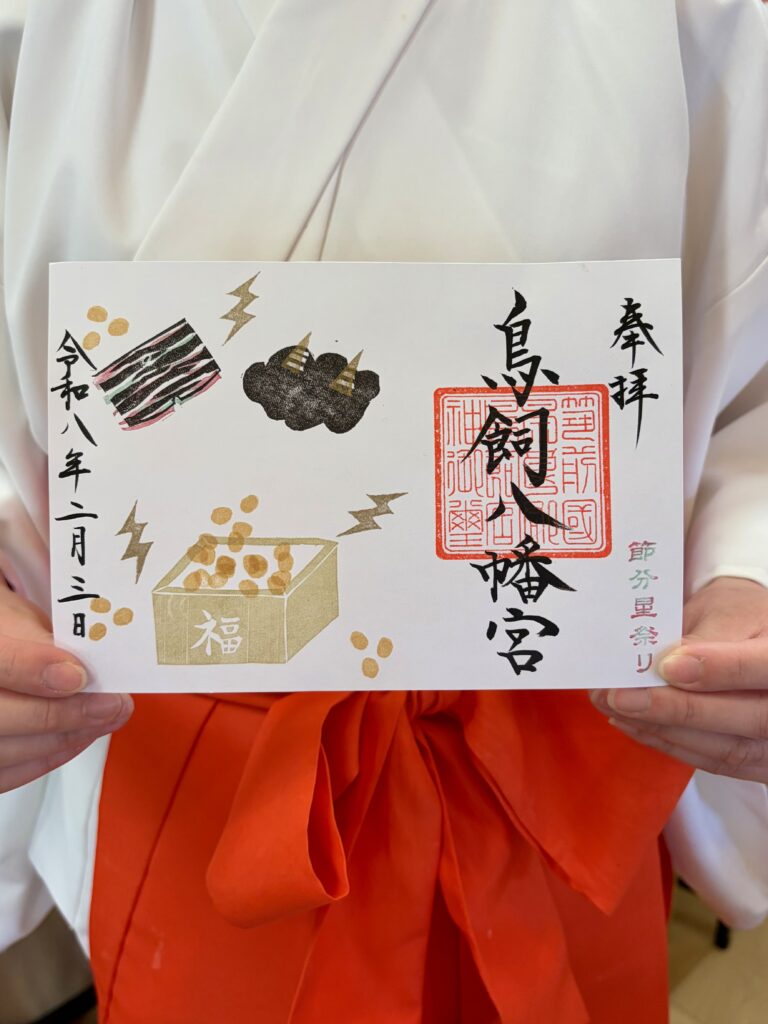 奉拝
節分星祭り
鳥飼八幡宮
令和八年二月三日
福